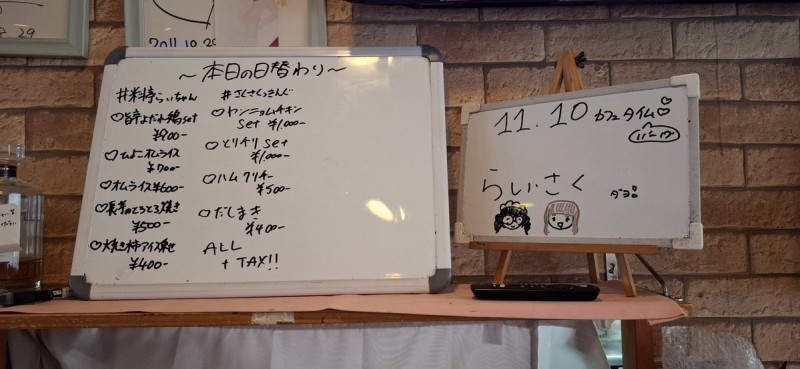 2011.10.29
~本日の日替わり~
#料亭らぃちゃん
♡旨辛よだれ鶏set
¥900-
♡ひよこオムライス
¥700-
♡オムライス¥600-
♡長芋のとろとろ焼き
¥500-
♡焼き柿アイス乗せ
¥400-
#さくさくっきんぐ
○ヤンニョムチキン
set ¥1,000-
○とりチリ set
¥1,000-
○ハムクリチー
¥500-
○だしまき
¥400-
ALL
+ TAX!!
11.10 カフェタイム♡
らぃさく
ダヨ!